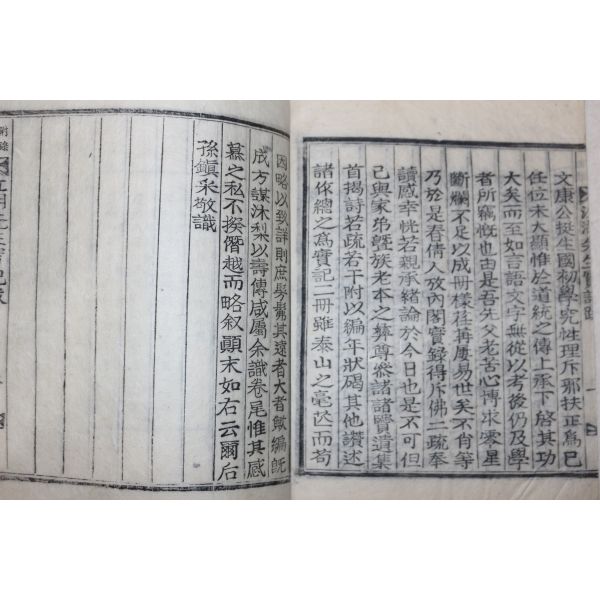 文康公挺生國初學究性理斥邪扶正爲己
任位未大顯惟於道統之傳上承下啓其功
大矣而至如言語文字無從以考後仍及學
者所竊慨也由是吾先父老苦心博求零星
斷爛不足以成冊樣荏苒屢易世矣不肖等
乃於是春倩人攷內閣實錄得斥佛二疏奉
讀感幸恍若親承緖論於今日也是不可但
已與家弟曁族老本之彝尊參諸諸賢遺集
首揭詩若疏若干附以編年狀碣其他讚述
諸作總之爲實記二冊雖泰山之毫芒而苟
因略以致詳則庶髣髴其遠者大者歟編旣
成方謀沐梨以壽傳咸屬余識卷尾惟其感
慕之私不揆僭越而略敘顚末如右云爾后
孫鎭 敬識
附錄